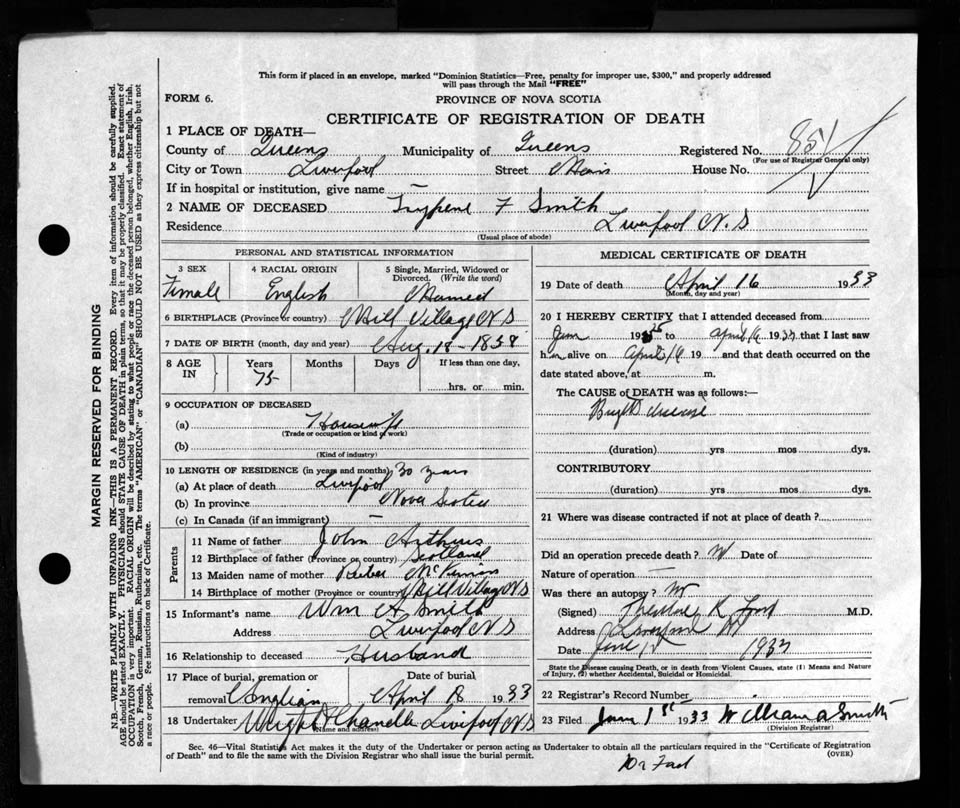 This form if placed in an envelope, marked "Dominion Statistics—Free, penalty for improper use, $300," and properly addressed
will pass through the Mail "FREE"
FORM 6.
PROVINCE OF NOVA SCOTIA
CERTIFICATE OF REGISTRATION OF DEATH
1 PLACE OF DEATH—
County of Queens Municipality of Queens Registered No. 851
(For use of Registrar General only)
City or Town Liverpool Street Main House No.
If in hospital or institution, give name —
2 NAME OF DECEASED Tryphene F Smith
Residence Liverpool N.S
(Usual place of abode)
PERSONAL AND STATISTICAL INFORMATION
3 SEX 4 RACIAL ORIGIN 5 Single, Married, Widowed or
Divorced. (Write the word)
Female English Married
6 BIRTHPLACE (Province or country) Mill Village NS
7 DATE OF BIRTH (month, day and year) Aug. 18 - 1858
8 AGE IN Years Months Days If less than one day,
75 hrs. or min.
9 OCCUPATION OF DECEASED
(a) Housewife
(Trade or occupation or kind of work)
(b)
(Kind of industry)
10 LENGTH OF RESIDENCE (in years and months) 30 years
(a) At place of death Liverpool
(b) In province Nova Scotia
(c) In Canada (if an immigrant) —
Parents
11 Name of father John Arthurs
12 Birthplace of father (Province or country) Scotland
13 Maiden name of mother
14 Birthplace of mother (Province or country) Mill Village NS
15 Informant's name Wm A. Smith
Address Liverpool NS
16 Relationship to deceased Husband
17 Place of burial, cremation or Date of burial
removal April 18 1933
18 Undertaker Wright Liverpool NS
(Name and address)
MEDICAL CERTIFICATE OF DEATH
19 Date of death April 16 1933
(Month, day and year)
20 I HEREBY CERTIFY that I attended deceased from
Jan 19 to April 16 1933 that I last saw
h alive on April 16 19 and that death occurred on the
date stated above, at m.
The CAUSE OF DEATH was as follows:—
Brights disease
(duration) yrs mos dys.
CONTRIBUTORY
(duration) yrs mos dys.
21 Where was disease contracted if not at place of death?
Did an operation precede death? Date of
Nature of operation —
Was there an autopsy?
(Signed) M.D.
Address
Date June 1933
State the Disease causing Death, or in death from Violent Causes, state (1) Means and Nature
of Injury, (2) whether Accidental, Suicidal or Homicidal.
22 Registrar's Record Number
23 Filed 1st 1933 William A Smith
(Division Registrar)
Sec. 46—Vital Statistics Act makes it the duty of the Undertaker or person acting as Undertaker to obtain all the particulars required in the "Certificate of Registration
of Death" and to file the same with the Division Registrar who shall issue the burial permit. (OVER)
MARGIN RESERVED FOR BINDING
N.B.—WRITE PLAINLY WITH UNFADING INK—THIS IS A PERMANENT RECORD. Every item of information should be carefully supplied.
AGE should be stated EXACTLY. PHYSICIANS should STATE CAUSE OF DEATH in plain terms, so that it may be properly classified. Exact statement of
OCCUPATION is very important. RACIAL ORIGIN will be described by stating to what people or race the deceased person belonged, whether English, Irish,
Scotch, French, German, Russian, Ruthenian, etc. The terms "AMERICAN" or "CANADIAN" SHOULD NOT BE USED as they express citizenship but not
a race or people. Fee instructions on back of Certificate.